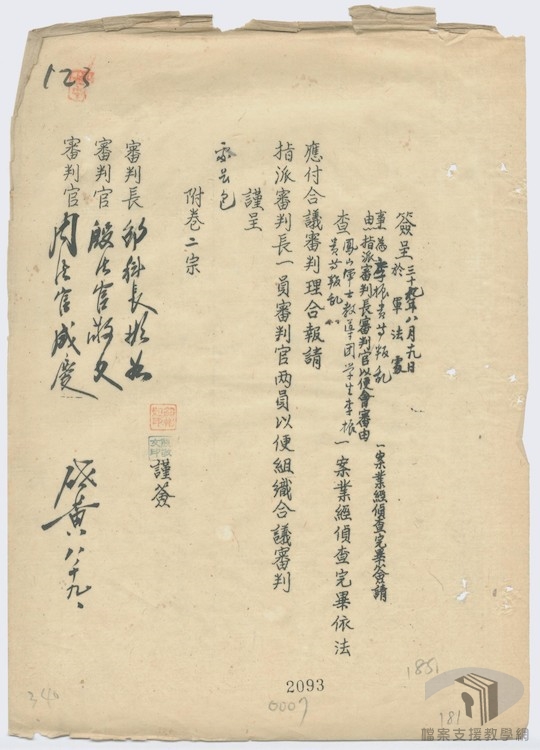 123
簽呈 三十九年八月十九日
於軍法處
事為李振青等叛乱一案業經偵查完畢簽請
指派審判長審判官以便會審由
查鳳山軍士教導团学生李振青等叛乱一案業經偵查完畢依法
應付合議審判理合報請
指派審判長一員審判官两員以便組織合議審判
謹呈
附卷二宗
謹簽
審判長
審判官 殷法官敬文
審判官 周法官咸慶
黄 八、十九、
2093
0007
1851
181
340
檔案支援教學網